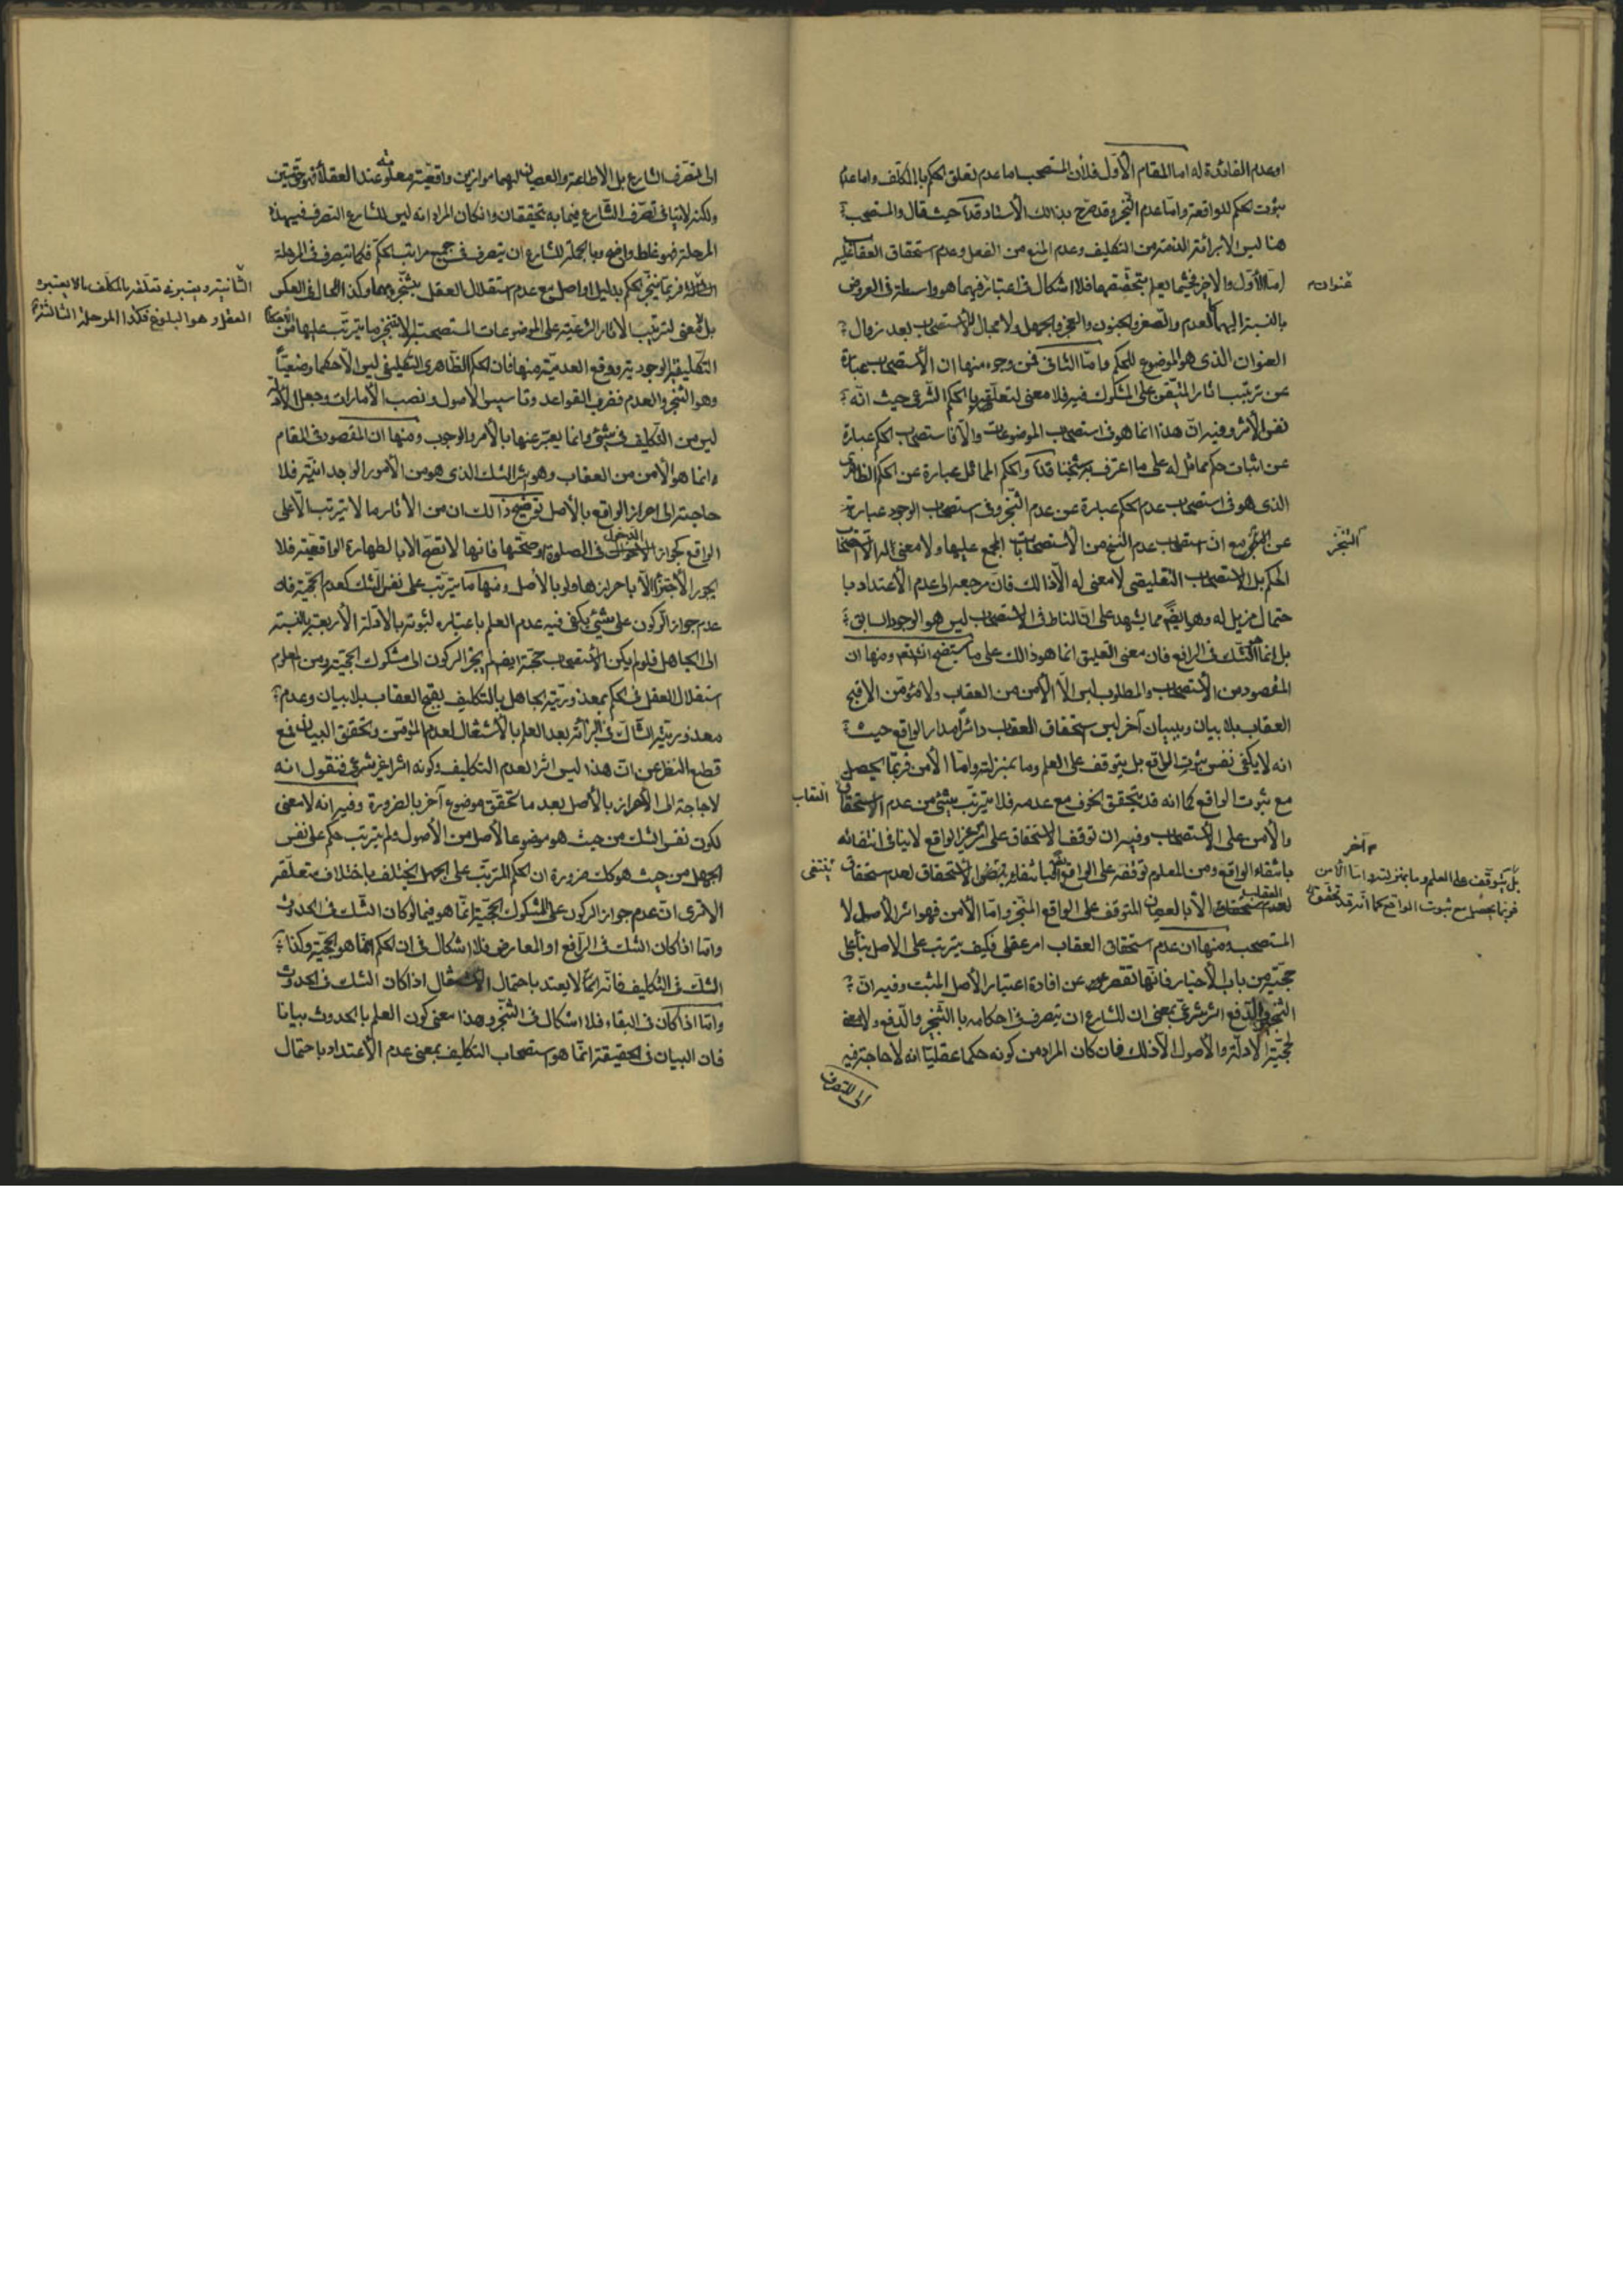 او عدم الفائدة له اما المقام الأول فلأن المستصحب اما عدم تعلق الحكم بالمكلف واما عدم
ثبوت الحكم للواقعة واما عدم التنجز وقد صرح بذالك الأستاد قده حيث قال والمستصحب
هنا ليس الا برائة الذمة من التكليف وعدم المنع من الفعل وعدم استحقاق العقاب عليه
اما الأول والاخر فحيثما يعلم بتحققهما فلا اشكال في اعتباره فيما هو واسطة في العروض
بالنسبة اليهما كالعدم والصغر والجنون والعجز والجهل ولا مجال للأستصحاب بعد زوال
العنوان الذى هو الموضوع للحكم واما الثانى فمن وجوه منها ان الأستصحاب عبارة
عن ترتيب اثار المتيقن على المشكوك فيه فلا معنى لتعلقه بالحكم الشرعى حيث انه
نفس الأثر وفيه ان هذا انما هو في استصحاب الموضوعات والا فاستصحاب الحكم عبارة
عن اثبات حكم مماثل له على ما اعترف به شيخنا قده والحكم المماثل عبارة عن الحكم الظاهرى
الذى هو في استصحاب عدم الحكم عبارة عن عدم التنجز وفي استصحاب الوجود عبارة
عن التنجز مع ان استصحاب عدم النسخ من الأستصحابات المجمع عليها ولا معنى له الا استصحاب
الحكم بل الاستصحاب التعليقي لا معنى له الا ذالك فان مرجعه الى عدم الأعتداد با
حتمال مزيل له وهو ايضا مما يشهد على ان المناط في الاستصحاب ليس هو الوجود السابق
بل انما الشك في الرافع فان معنى التعليق انما هو ذالك على ما سيتضح انشاء الله ومنها ان
المقصود من الاستصحاب والمطلوب ليس الا الأمن من العقاب ولا مؤمن الا قبح
العقاب بلا بيان وببيان آخر ليس استحقاق العقاب دائرا مدار الواقع حيث
انه لا يكفى نفس ثبوت الواقع بل يتوقف على العلم وما بمنزلته واما الأمن فربما يحصل
مع ثبوت الواقع كما انه قد يتحقق الخوف مع عدمه فلا يترتب شيئ من عدم الاستحقاق
والأمن على الأستصحاب وفيه ان توقف الاستحقاق على امر غير الواقع لا ينافى انتفائه
بانتفاء الواقع ومن المعلوم توقفه على الواقع
الا بالعصيان المتوقف على الواقع المنجز واما الأمن فهو اثر الأصل لا
المستصحب ومنها ان عدم استحقاق العقاب امر عقلى فكيف يترتب على الاصل بناء على
حجيته من باب الأخبار فانها تقصر عن افادة اعتبار الأصل المثبت وفيه ان
التنجز والدفع اثر شرعى بمعنى ان للشارع ان يتصرف في احكامه بالتنجز والدفع ولا معنى
لحجية الادلة والأصول الا ذلك فان كان المراد من كونه حكما عقليا انه لا حاجة فيه
الى التصرف
عنوانه
التنجز
العقاب
م آخر
بل يتوقف على العلم وما بمنزلته واما الأمن
فربما يحصل مع ثبوت الواقع كما انه قد يتحقق
ينتفى
الى تصرف الشارع بل الاطاعة والعصيان لهما موازين واقعية معلومة عند العقلاء فهو حق متين
ولكنه لا ينافى تصرف الشارع فيما به تحققان وان كان المراد انه ليس للشارع التصرف في هذه
المرحلة فهو غلط واضح وبالجملة للشارع ان يتصرف في جميع مراتب الحكم فكما يتصرف في المرحلة
فربما ينجز الحكم بدليل او اصل مع عدم استقلال العقل بتنجزه وكذا الحال في العكس
بل لا معنى لترتيب الاثار الشرعية على الموضوعات المستصحبة الا تنجز ما يترتب عليها من الاحكام
التكليفية الوجودية ورفع العدمية منها فان الحكم الظاهرى التكليفي ليس الا حكما وضعيا
وهو التنجز والعدم فضرب القواعد وتأسيس الأصول ونصب الأمارات وجعل الأدلة
ليس من التكليف في شيئ وانما يعبر عنها بالأمر والوجوب ومنها ان المقصود في المقام
انما هو الأمن من العقاب وهو اثر الشك الذى هو من الأمور الوجدانية فلا
حاجة الى احراز الواقع بالأصل توضيح ذالك ان من الأثار ما لا يترتب الا على
الواقع كجواز الدخول في الصلوة وصحتها فانها لا تصح الا بالطهارة الواقعية فلا
يجوز الأجتزاء الا باحرازها ولو بالأصل ومنها ما يترتب على نفس الشك كعدم الحجية فان
عدم جواز الركون على شيئ يكفى فيه عدم العلم باعتباره لثبوته بالأدلة الأربعة بالنسبة
الى الجاهل فلو لم يكن الأستصحاب حجة ايضا لم يجز الركون الى مشكوك الحجية ومن المعلوم
استقلال العقل في الحكم بمعذورية الجاهل بالتكليف بقبح العقاب بلا بيان وعدم
معذورية الشاك في البرائة بعد العلم بالأشتغال لعدم المؤمن وتحقق البيان فمع
قطع النظر عن ان هذا ليس اثرا لعدم التكليف وكونه اثرا غير شرعى فنقول انه
لا حاجة الى الأحراز بالأصل بعد ما تحقق موضوع آخر بالضرورة وفيه انه لا معنى
لكون نفس الشك من حيث هو موضوعا لأصل من الأصول ولم يترتب حكم على نفس
الجهل من حيث هو كك ضرورة ان الحكم المترتب على الجهل يختلف باختلاف متعلقه
الا ترى ان عدم جواز الركون على المشكوك الحجية انما هو فيما لو كان الشك في الحدوث
واما اذا كان الشك في الرافع او المعارض فلا اشكال في ان الحكم انما هو الحجية وكذا
الشك في التكليف فانه انما لا يعتد باحتمال الاشتغال اذا كان الشك في الحدوث
واما اذا كان في البقاء فلا اشكال في التنجز وهذا معنى كون العلم بالحدوث بيانا
فان البيان في الحقيقة انما هو استصحاب التكليف بمعنى عدم الأعتداد باحتمال
الثانية ويعتبر في تعلقه بالمكلف ما لا يعتبره
العقل وهو البلوغ فكذا المرحلة الثالثة